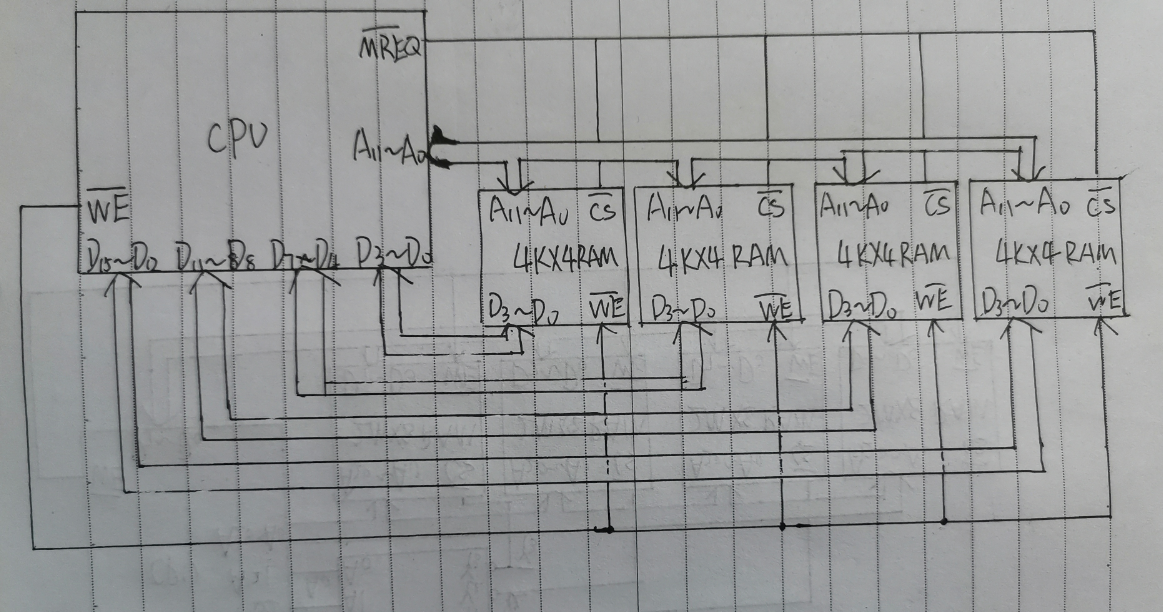 M̅R̅E̅Q̅
CPU
A₁₁~A₀
W̅E̅
D₁₅~D₁₂ D₁₁~D₈ D₇~D₄ D₃~D₀
A₁₁~A₀ C̅S̅
4KX4RAM
D₃~D₀ W̅E̅
A₁₁~A₀ C̅S̅
4KX4RAM
D₃~D₀ W̅E̅
A₁₁~A₀ C̅S̅
4KX4RAM
D₃~D₀ W̅E̅
A₁₁~A₀ C̅S̅
4KX4RAM
D₃~D₀ W̅E̅